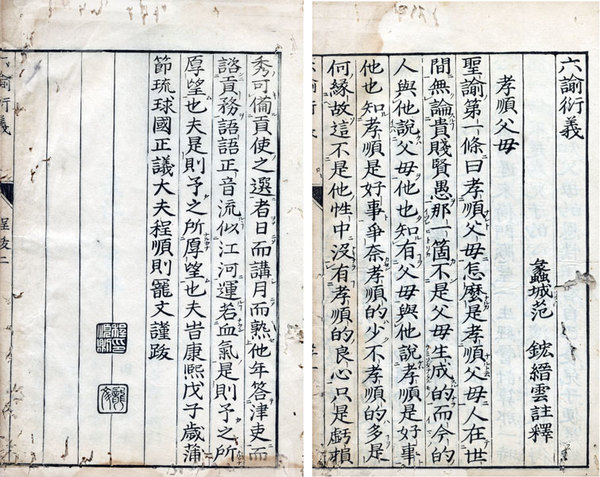 六諭衍義
蠡城范 鋐縉雲註釋
孝順父毋
聖諭第一條曰孝順父毋怎麼是孝順父毋人在世
間無論貴賤賢愚那一箇不是父毋生成的而今的
人與他說父毋他也知有父毋與他說孝順是好事
他也知孝順是好事爭奈孝順的少不孝順的多是
何緣故這不是他性中沒有孝順的良心只是虧損
秀可備貢使之選者日而講月而熟他年答津吏而
諮貢務語語正音流似江河運若血氣是則予之所
厚望也夫是則予之所厚望也夫旹康熙戊子歲蒲
節琉球國正議大夫程順則寵文謹跋
六諭衍義
程跋二